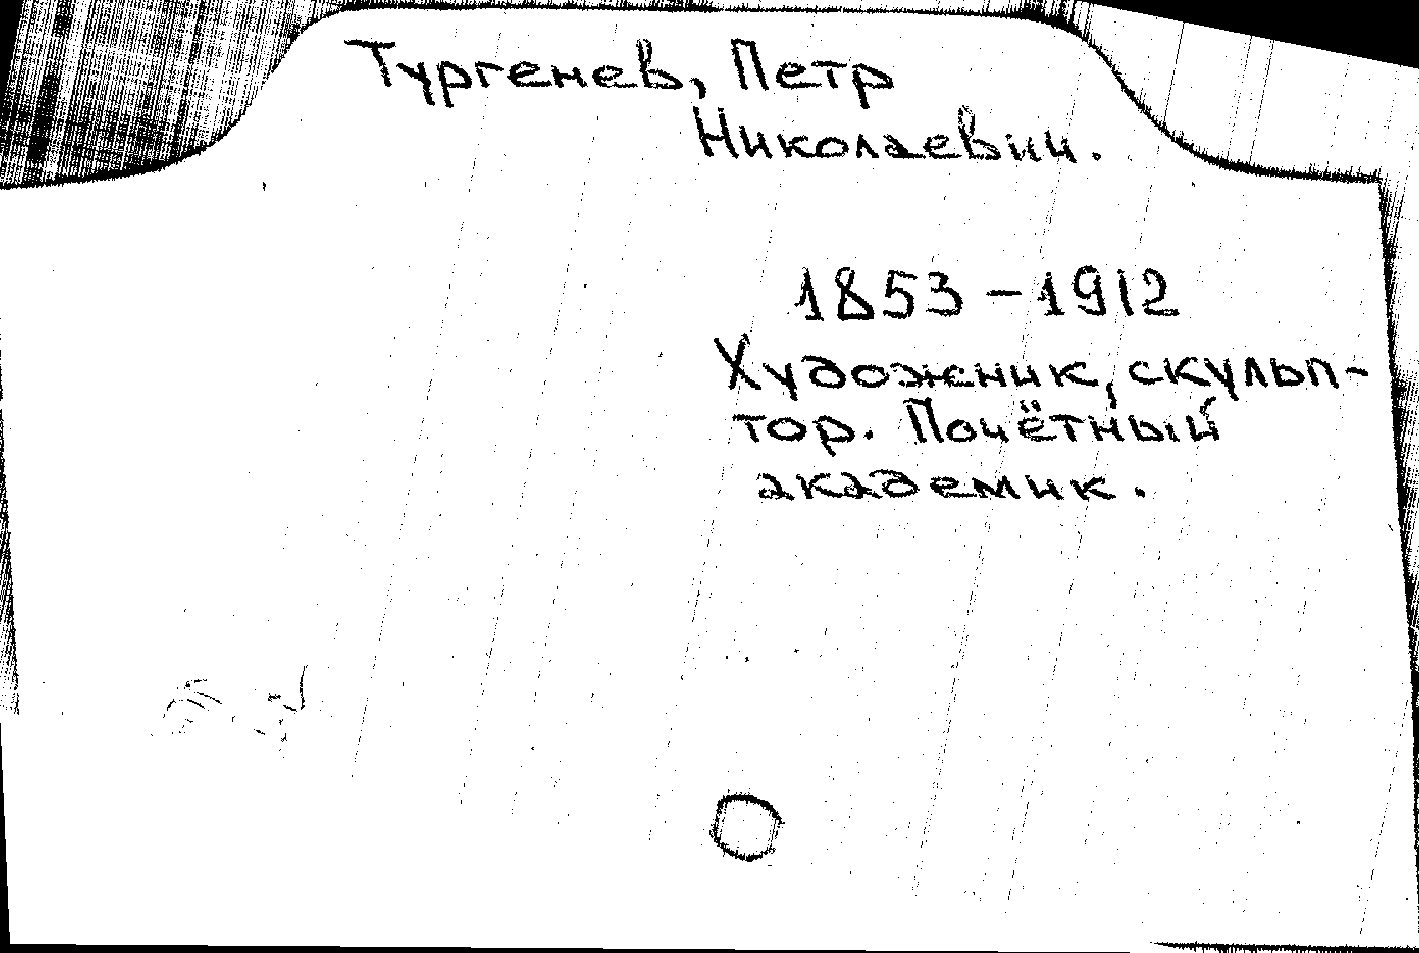 Тургенев, Петр
Николаевич.
1853 – 1912
Художник, скульп-
тор. Почётный
академик.